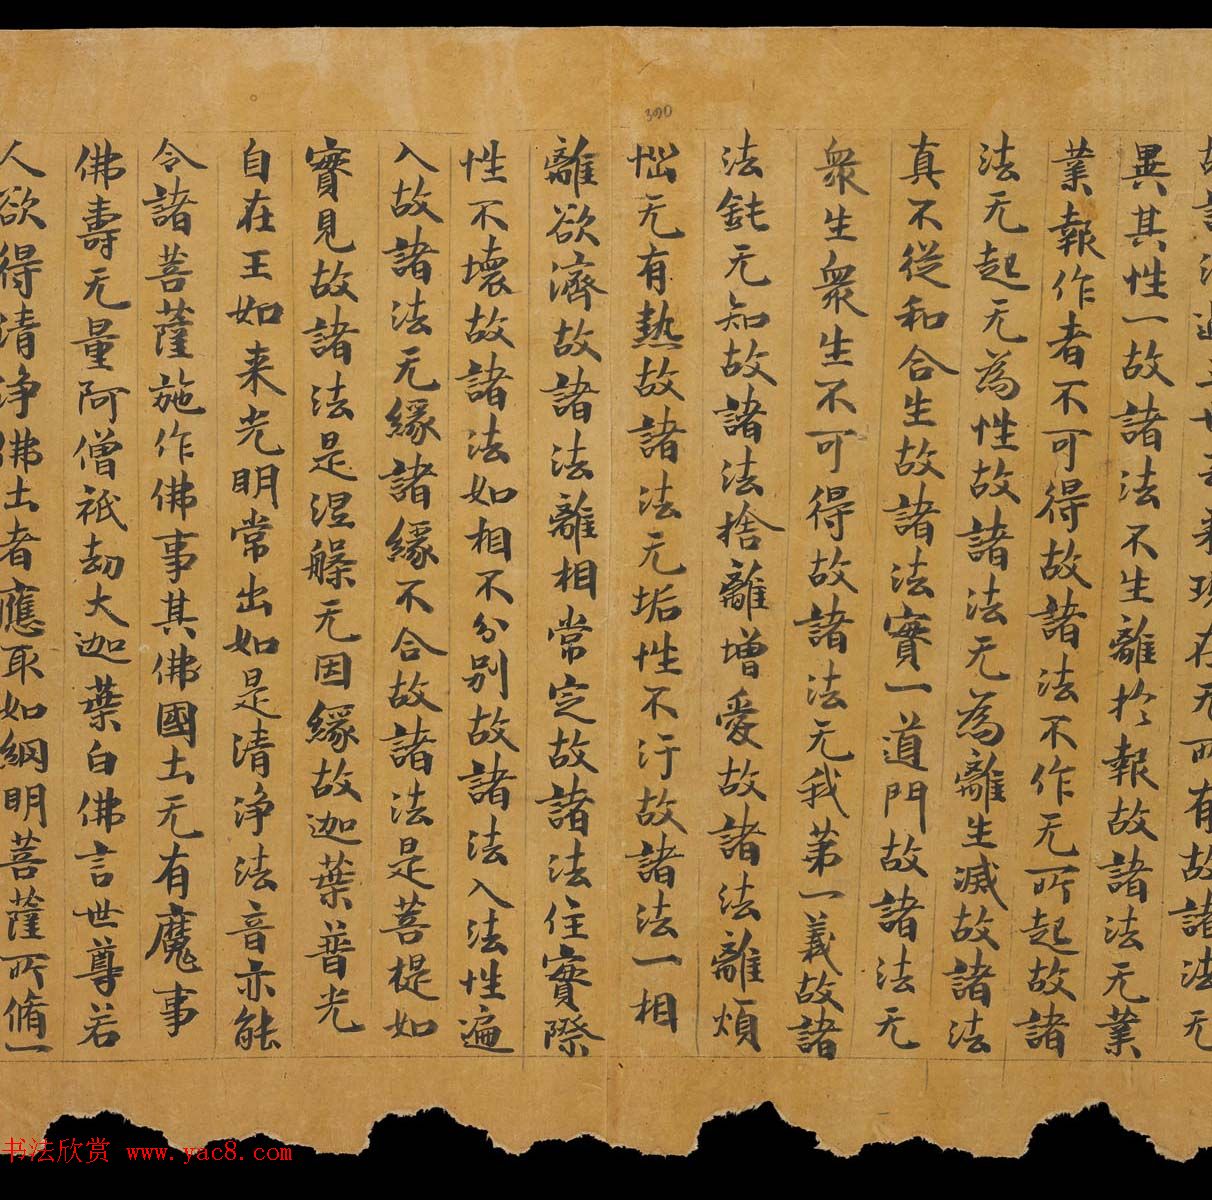 故諸法過三世去来現在无所有故諸法无
異其性一故諸法不生離於報故諸法无業
業報作者不可得故諸法不作无所起故諸
法无起无為性故諸法无為離生滅故諸法
真不從和合生故諸法實一道門故諸法无
衆生衆生不可得故諸法无我第一義故諸
法鈍无知故諸法捨離增愛故諸法離煩
惱无有熱故諸法无垢性不汙故諸法一相
離欲濟故諸法離相常定故諸法住實際
性不壞故諸法如相不分別故諸法入法性遍
入故諸法无緣諸緣不合故諸法是菩提如
實見故諸法是涅槃无因緣故迦葉普光
自在王如来光明常出如是清净法音亦能
令諸菩薩施作佛事其佛國土无有魔事
佛壽无量阿僧祇劫大迦葉白佛言世尊若
人欲得清净佛土者應取如綱明菩薩所脩一
390
书法欣赏 www.yac8.com